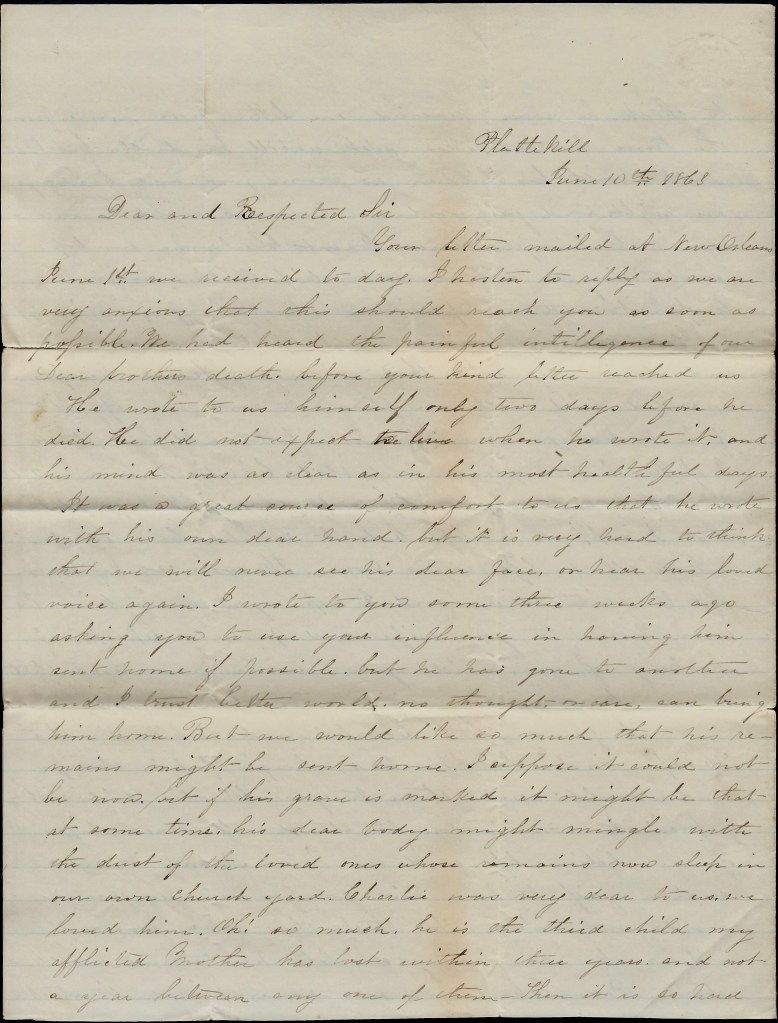 Plattekill
June 10th 1863
Dear and Respected Sir
Your letter mailed at New Orleans
June 1st we received to day. I hasten to reply as we are
very anxious that this should reach you as soon as
possible. We had heard the painful intillegence of our
Dear brothers death. before your kind letter reached us
He wrote to us himself only two days before he
died. He did not expect to live when he wrote it, and
his mind was as clear as in his most healthful days
It was a great source of comfort to us that he wrote
with his own dear hand. but it is very hard to think
that we will never see his dear face, or hear his loved
voice again. I wrote to you some three weeks ago
asking you to use your influence in having him
sent home if possible. but he has gone to another
and I trust better world. no thought, or care, can bring
him home. But we would like so much that his re-
mains might be sent home. I suppose it could not
be now. but if his grave is marked it might be that
at some time. his dear body might mingle with
the dust of the loved ones whose remains now sleep in
our own Church yard. Charlie was very dear to us, we
loved him. Oh! so much. he is the third child my
afflicted Mother has lost within three years. and not
a year between any one of them - Then it is so hard